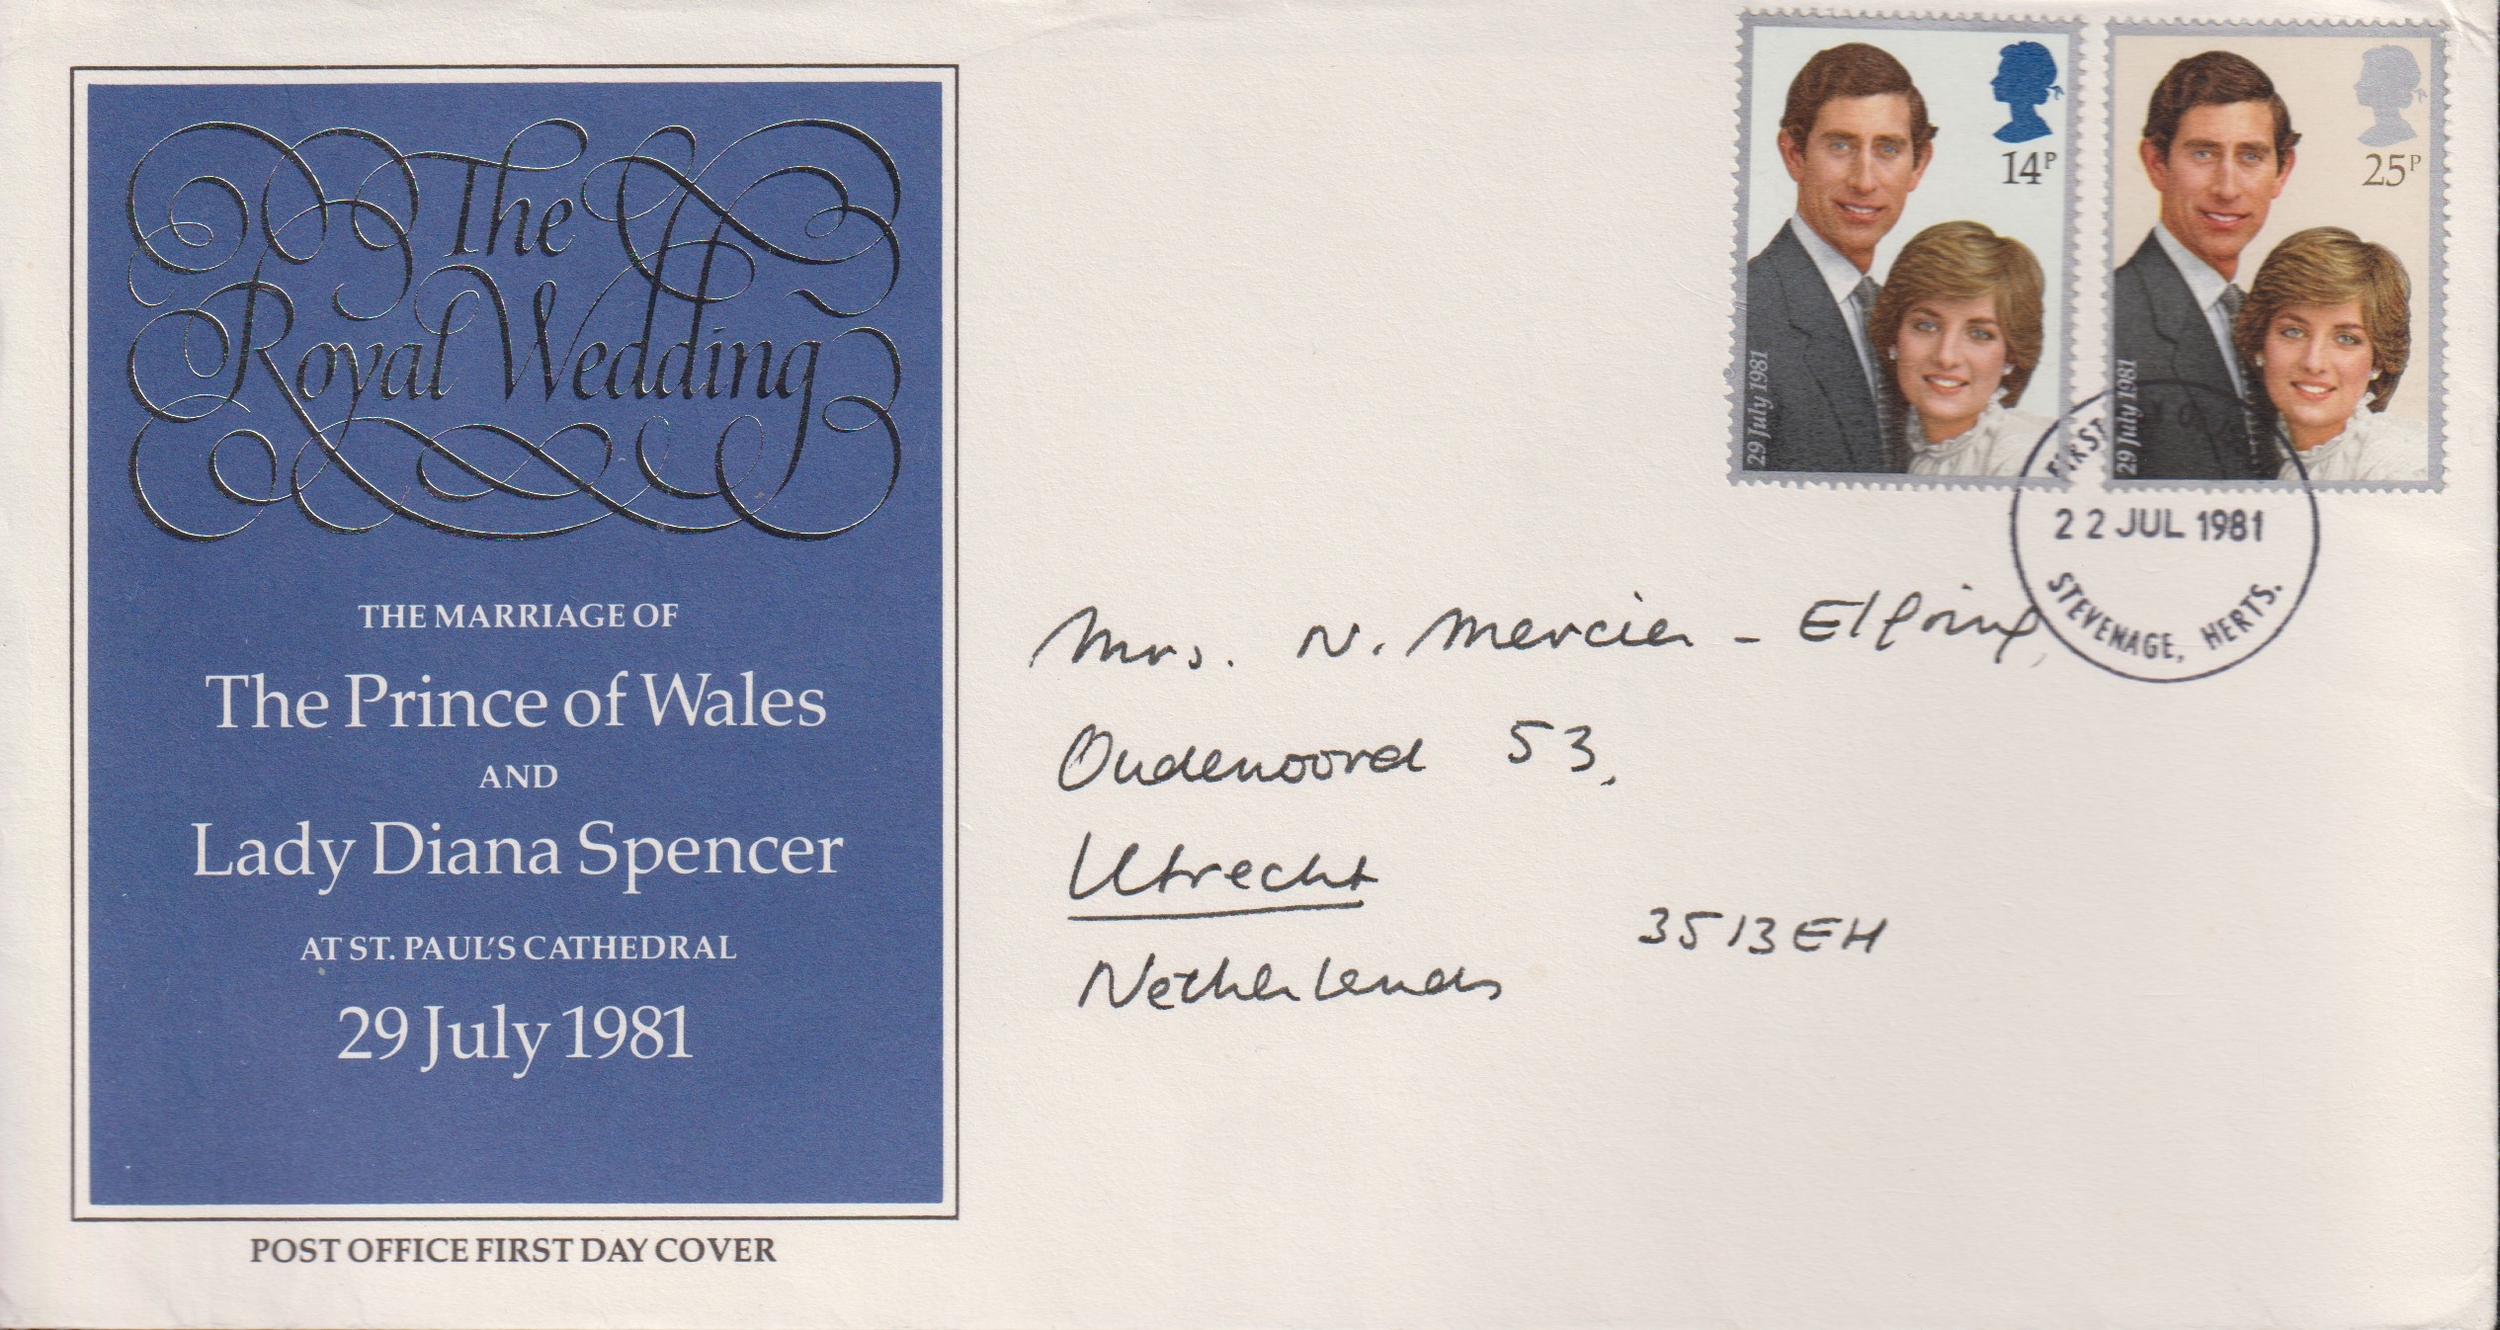 The
Royal Wedding
THE MARRIAGE OF
The Prince of Wales
AND
Lady Diana Spencer
AT ST. PAUL'S CATHEDRAL
29 July 1981
POST OFFICE FIRST DAY COVER
14P
29 July 1981
25P
29 July 1981
FIRST
22 JUL 1981
STEVENAGE, HERTS.
Mrs. N. Mercier -
Oudenoord 53,
Utrecht
3513EH
Netherlands